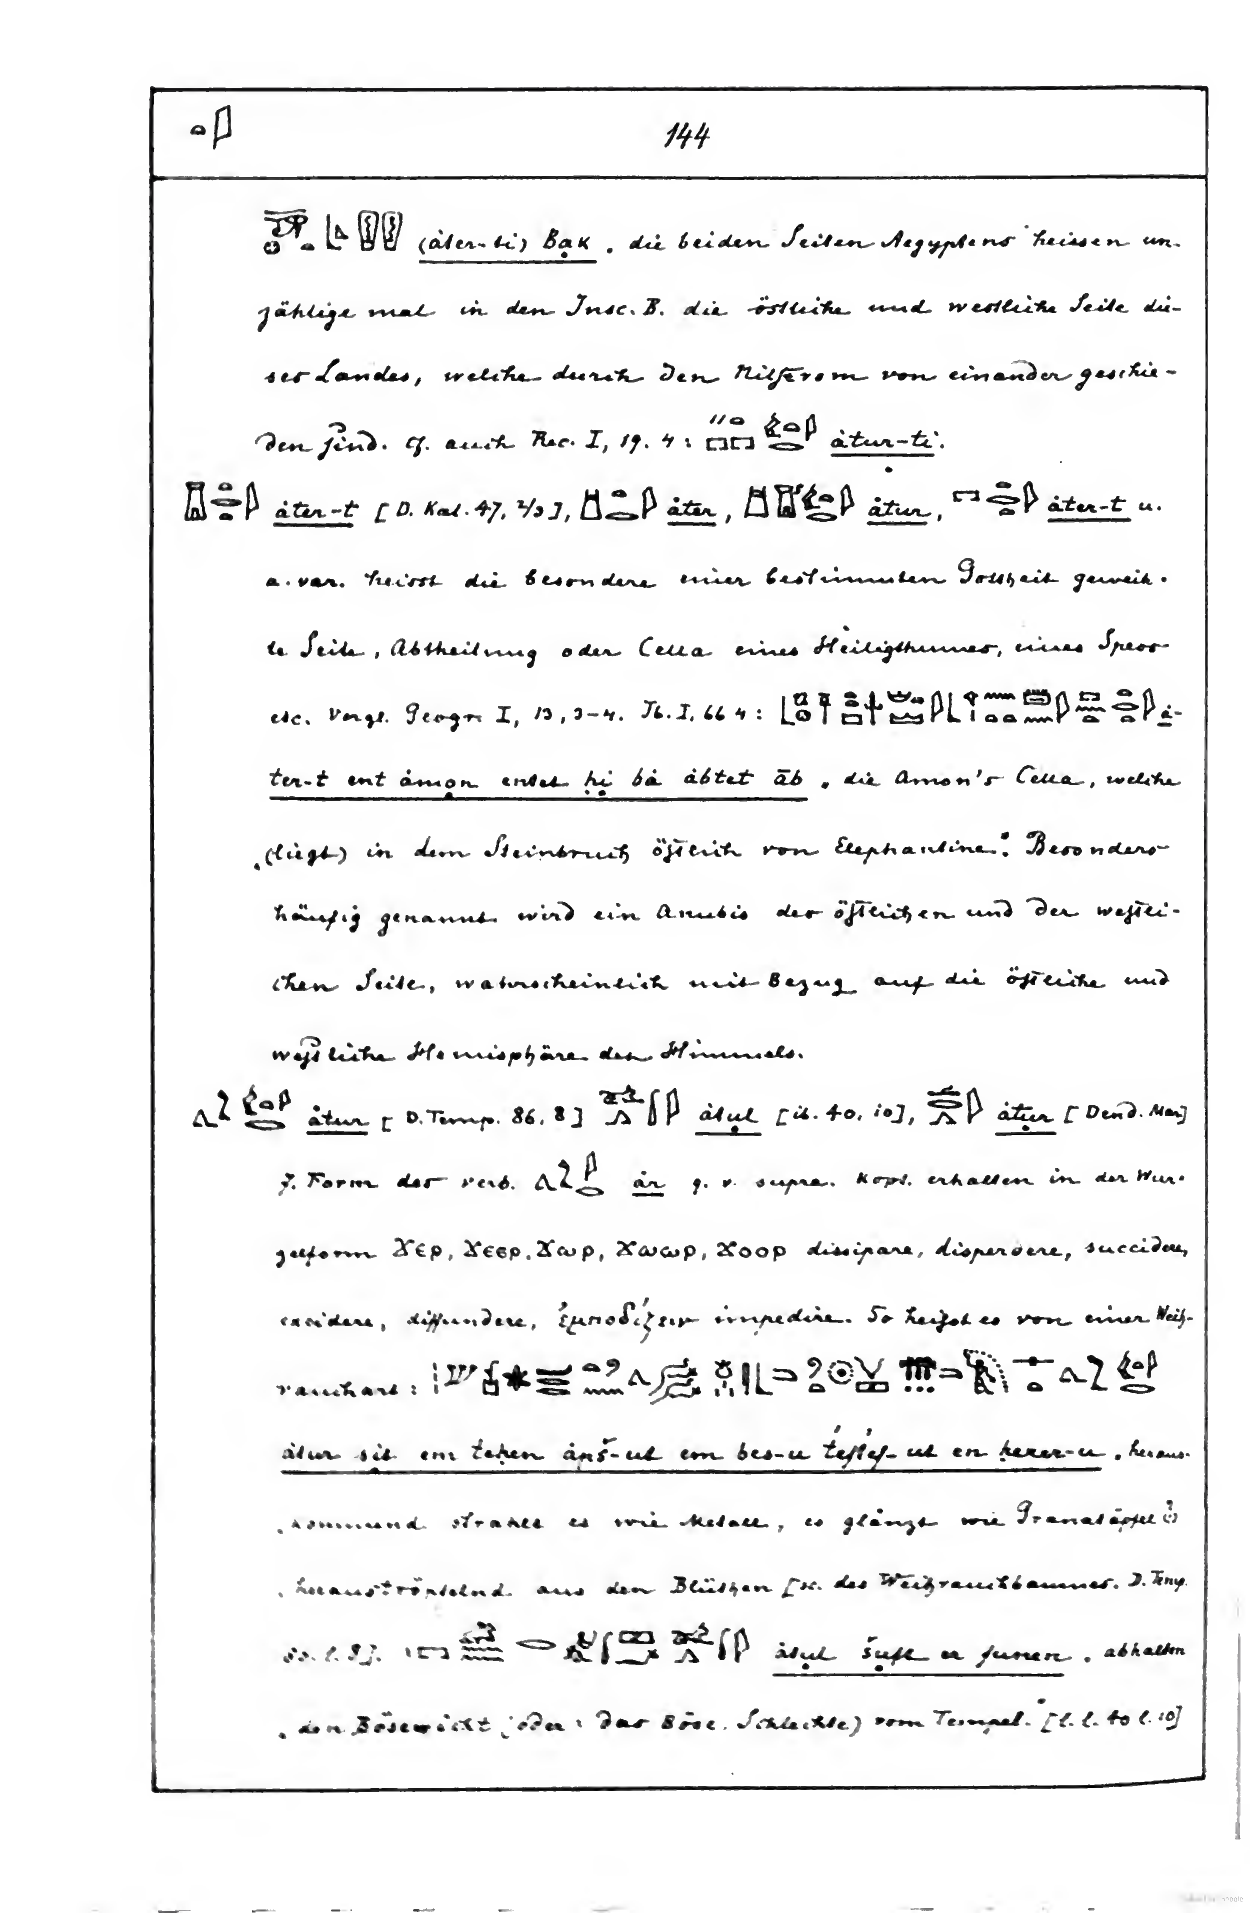 144
(åter-ti) Baḳ „die beiden Seiten Aegyptens“ heissen un-
zählige mal in den Insc. B. die östliche und westliche Seite die-
ses Landes, welche durch den Nilstrom von einander geschie-
den sind. cf. auch Rec. I, 19. 4: åtur-ti.
åter-t [D. Kal. 47, 2/3], åter, åtur, åter-t u.
a. var. heisst die besondere einer bestimmten Gottheit geweih-
te Seite, Abtheilung oder Cella eines Heiligthumes, eines Speos
etc. Vergl. Geogr. I, 13, 3-4. Ib. I, 66 4: å-
ter-t ent åmon entet ḥi bå åbtet āb „die Amon's Cella, welche
„(liegt) in dem Steinbruch östlich von Elephantine.“ Besonders
häufig genannt wird ein Anubis der östlichen und der westli-
chen Seite, wahrscheinlich mit Bezug auf die östliche und
westliche Hemisphäre des Himmels.
åtur [D. Temp. 86, 8] åtul [ib. 40, 10], åtur [Dend. Mar]
7. Form des verb. år q. v. supra. Kopt. erhalten in der Wur-
zelform ϫερ, ϫεερ, ϫωρ, ϫωωρ, ϫοορ dissipare, dispergere, succidere,
excidere, diffundere, ἐμποδίζειν impedire. So heisst es von einer Weih-
rauchart:
åtur sit em teḥen åpš-ut em bes-u teftef-ut en ḥerer-u „heraus-
„kommend strahlt es wie Metall, es glänzt wie Granatäpfel
„heraströpfelnd aus den Blüthen [sc. des Weihrauchbaumes. D. Temp.
åtul šuft er funen „abhalten
„den Bösewicht (oder: das Böse, Schlechte) vom Tempel.“ [l. l. 40 l. 10]